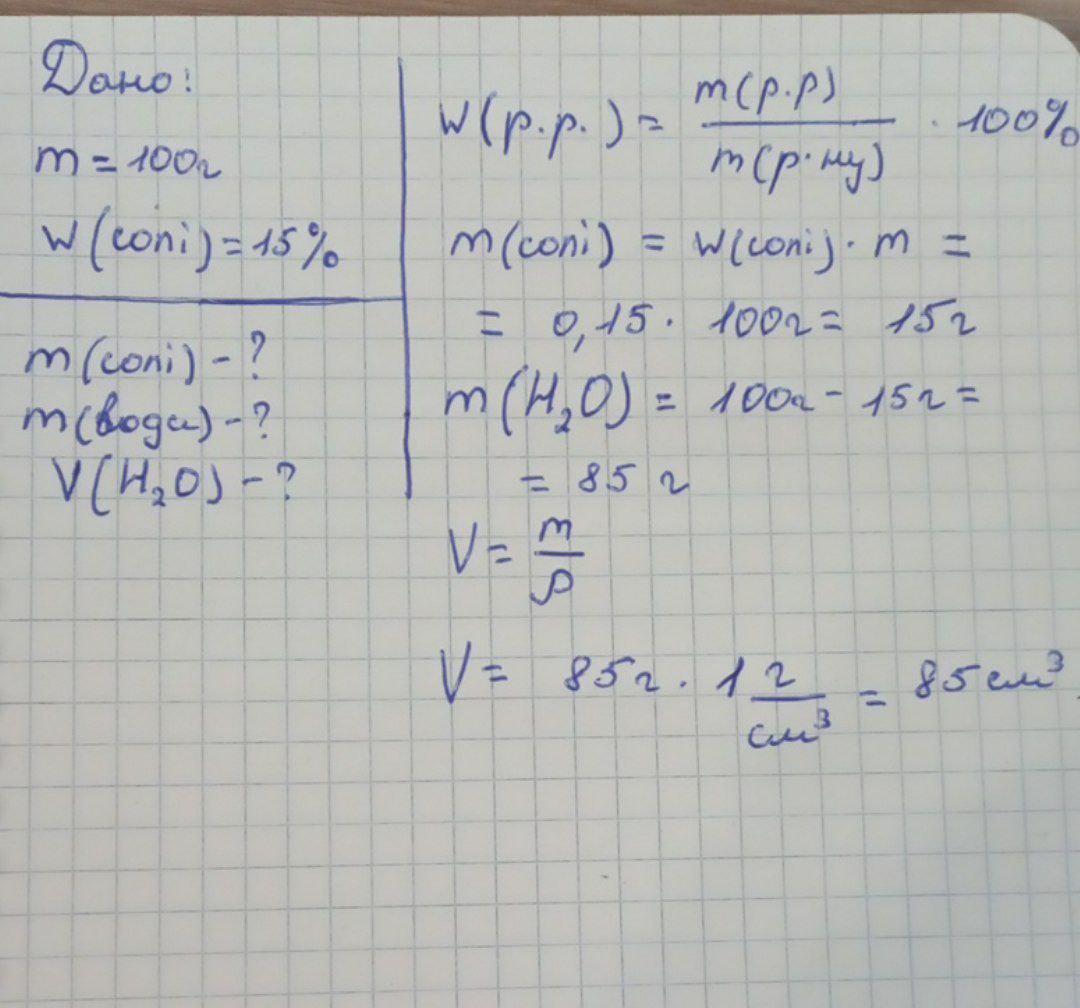 Дано:
m = 100г
W(солі) = 15%
m(солі) - ?
m(води) - ?
V(H₂O) - ?
W(р.р.) = m(р.р) / m(р.ну) · 100%
m(солі) = W(солі) · m =
= 0,15 · 100г = 15г
m(H₂O) = 100г - 15г =
= 85 г
V = m / ρ
V = 85г · 1 г / см³ = 85 см³